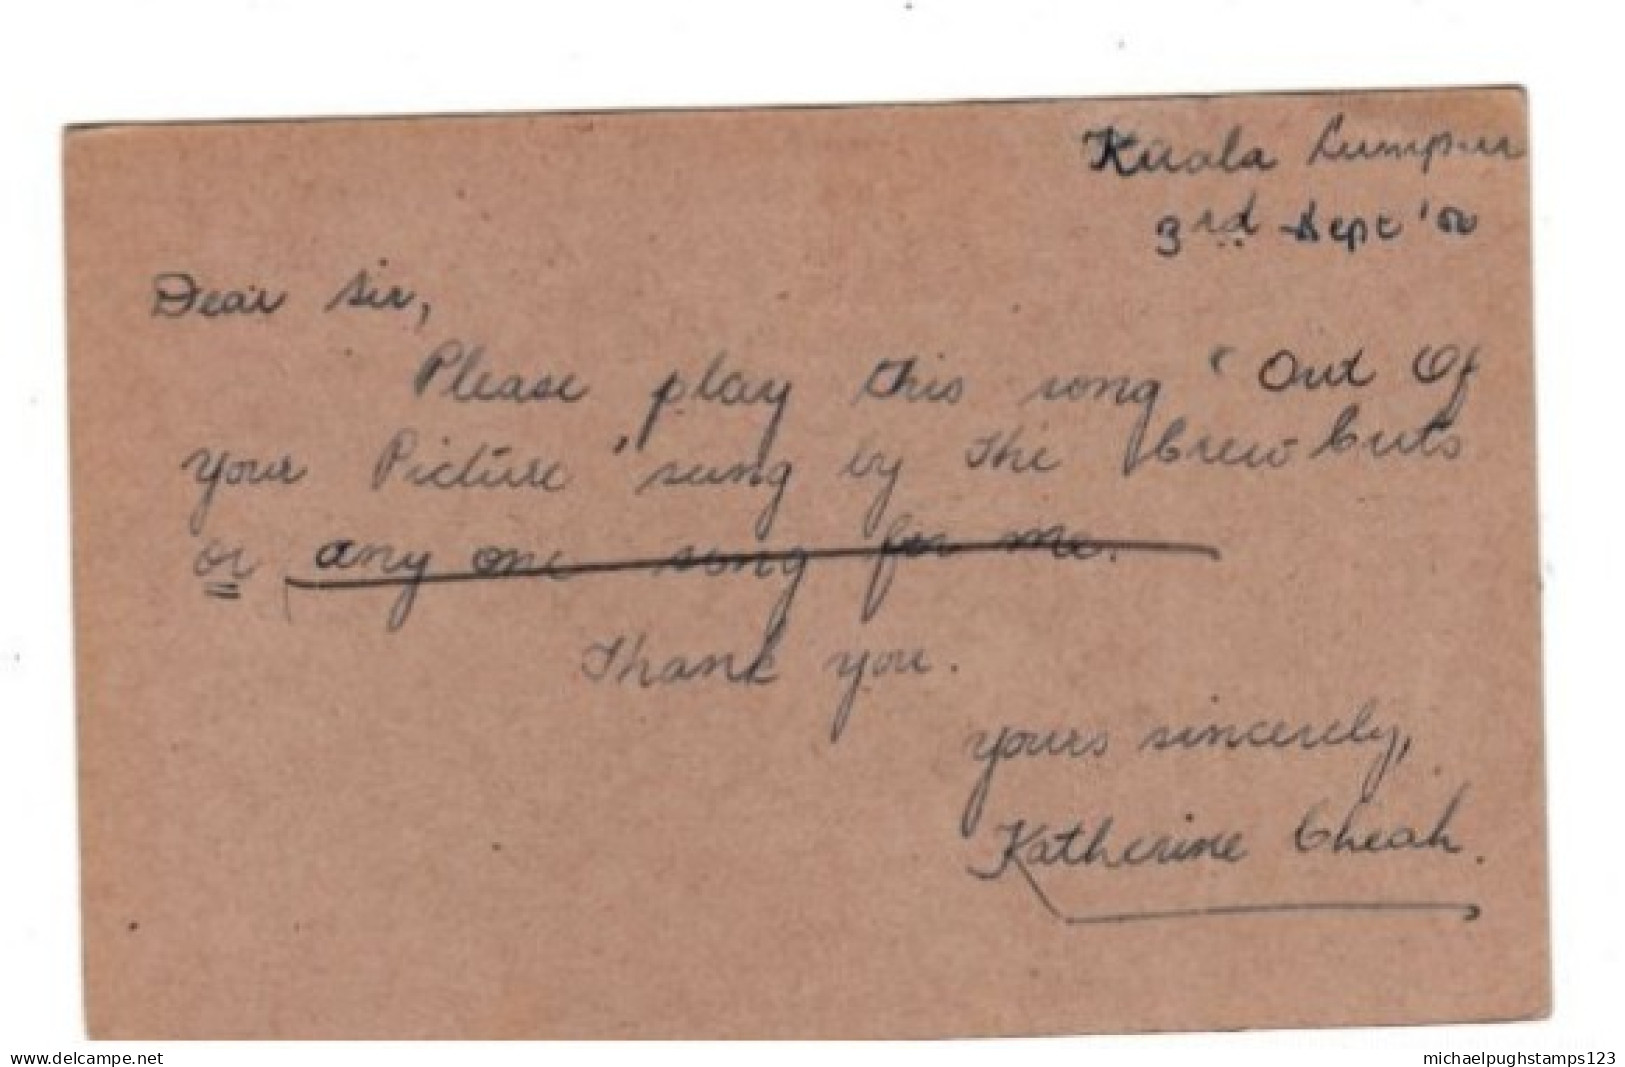 Kuala Lumpur
3rd Sept
Dear Sir,
Please play this song "Out Of
your Picture" sung by the Crew Cuts
or any one song for me.
Thank you.
yours sincerely,
Katherine Cheah.
delcampe.net
michaelpughstamps123